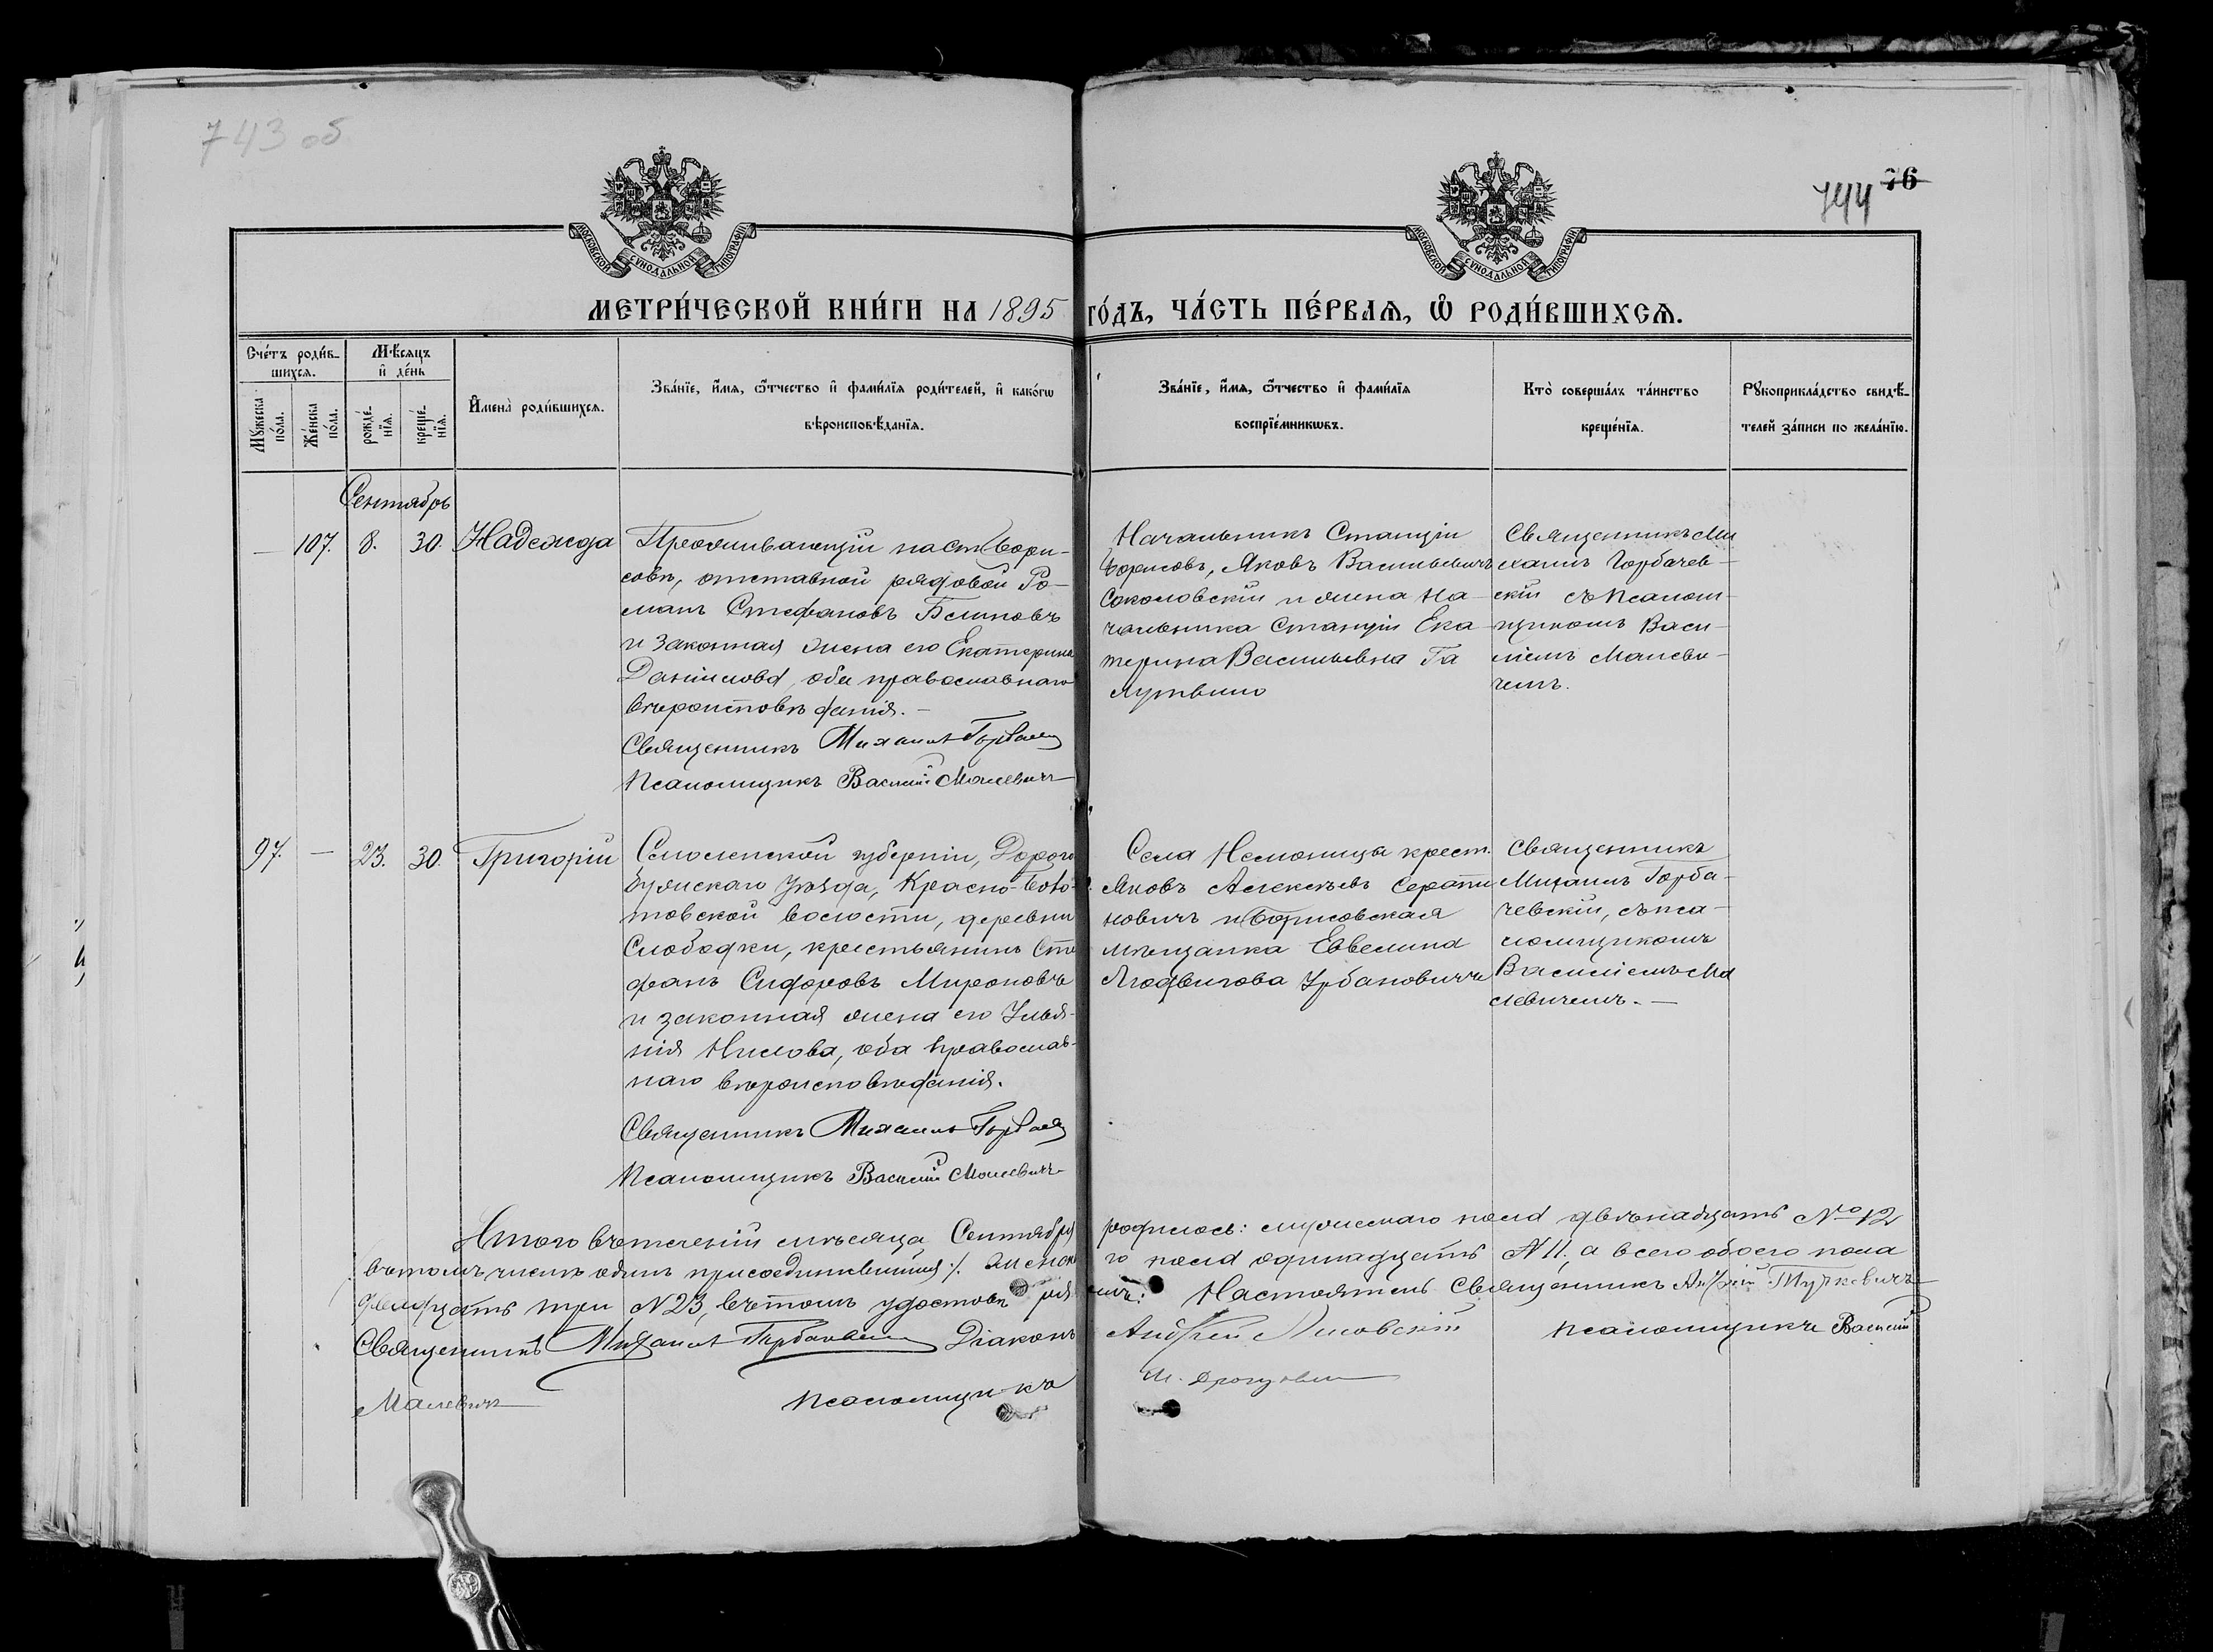 743 об
744 76
МОСКОВСКОЙ СѴНОДАЛЬНОЙ ТИПОГРАФІИ
МОСКОВСКОЙ СѴНОДАЛЬНОЙ ТИПОГРАФІИ
МЕТРИ́ЧЕСКОЙ КНИ́ГИ НА 1895 ГО́ДЪ, ЧА́СТЬ ПЕ́РВАѦ, Ѡ РОДИ́ВШИХСѦ.
Сче́тъ роди́в-
шихсѧ.
Мꙋ́жеска
по́ла.
Же́нска
по́ла.
Мѣ́сѧцъ
и де́нь
рожде́-
нїѧ.
креще́-
нїѧ.
Имена̀ роди́вшихсѧ.
Зва́нїе, и́мѧ, ѻ́тчество и фами́лїѧ роди́телей, и како́гѡ
вѣроисповѣ́данїѧ.
Зва́нїе, и́мѧ, ѻ́тчество и фами́лїѧ
воспрїе́мникѡвъ.
Кто̀ соверша́лъ та́инство
креще́нїѧ.
Рꙋкоприкла́дство свидѣ́-
телей за́писи по жела́нїю.
Сентябрь
— 107. 8. 30. Надежда
Проживающій на ст. Бори-
совъ, отставной рядовой Ро-
манъ Стефановъ Блиновъ
и законная жена его Екатерина
Даніилова, оба православнаго
вѣроисповѣданія. —
Священникъ Михаилъ
Псаломщикъ Василій Малевичъ
Начальникъ Станціи
Борисовъ, Яковъ Васильевичъ
Соколовскій и жена На-
чальника Станціи Ека-
терина Васильевна Га
Священникъ Ми
хаилъ Горбачев-
скій съ псалом-
щикомъ Васи-
ліемъ Малеви-
чемъ.
97. — 23. 30. Григорій
Смоленской губерніи, Дорого
бужскаго уѣзда, Красно-Боло-
товской волости, деревни
Слободки, крестьянинъ Сте
фанъ Сидоровъ Мироновъ
и законная жена его Улья-
нія Нилова, оба православ-
наго вѣроисповѣданія.
Священникъ Михаилъ
Псаломщикъ Василій Малевичъ
Села Неманицы крест.
Яковъ Алексѣевъ Серати
новичъ и Борисовская
мѣщанка Евелина
Людвигова Урбановичъ
Священникъ
Михаилъ Горба-
чевскій, съ пса-
ломщикомъ
Василіемъ Ма
левичемъ. —
Итого въ теченіи мѣсяца Сентября родилось: мужескаго пола двѣнадцать № 12
въ томъ числѣ одинъ присоединившійся ·/. женска го пола одинадцать № 11, а всего обоего пола
двадцать три № 23, въ томъ удостовѣ ряемъ: Настоятель Священникъ
Священникъ Михаилъ Горбачевскій Діаконъ Андрей Лисовскій Псаломщикъ Василій
Малевичъ Псаломщикъ